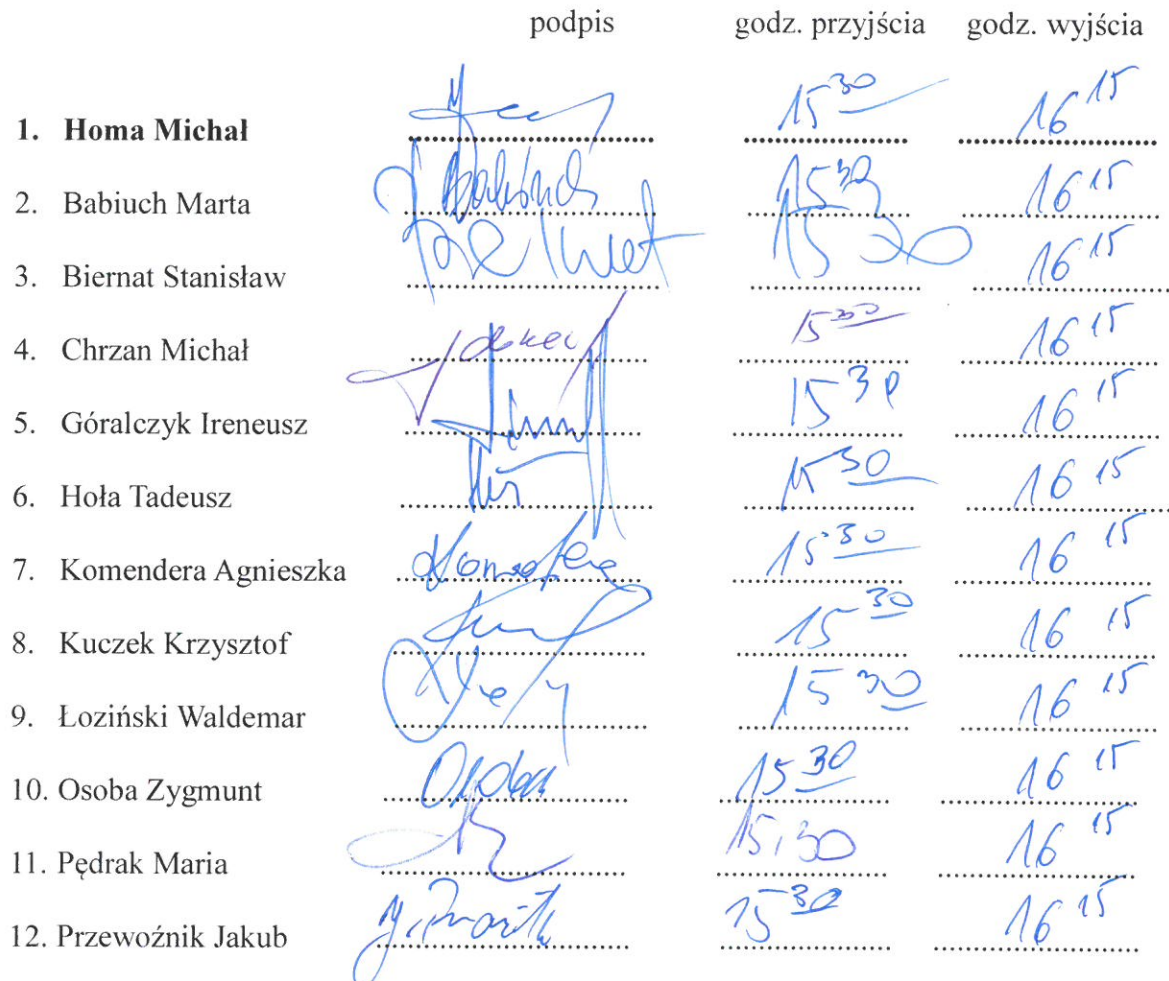 podpis godz. przyjścia godz. wyjścia
1. Homa Michał 15 30 16 15
2. Babiuch Marta 15 30 16 15
3. Biernat Stanisław 15 30 16 15
4. Chrzan Michał 15 30 16 15
5. Góralczyk Ireneusz 15 30 16 15
6. Hoła Tadeusz 15 30 16 15
7. Komendera Agnieszka 15 30 16 15
8. Kuczek Krzysztof 15 30 16 15
9. Łoziński Waldemar 15 30 16 15
10. Osoba Zygmunt 15 30 16 15
11. Pędrak Maria 15,30 16 15
12. Przewoźnik Jakub 15 30 16 15